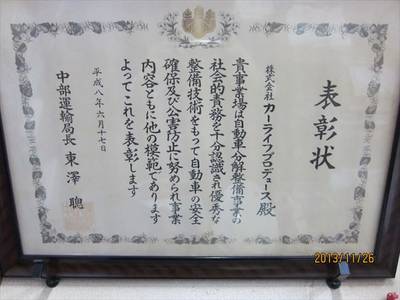 表彰状
株式会社 カーライフプロデース 殿
貴事業場は自動車分解整備事業の
社会的責務を十分認識され優秀な
整備技術をもって自動車の安全
確保及び公害防止に努められ事業
内容ともに他の模範であります
よってこれを表彰します
平成八年六月十七日
中部運輸局長 東澤 聰
2013/11/26